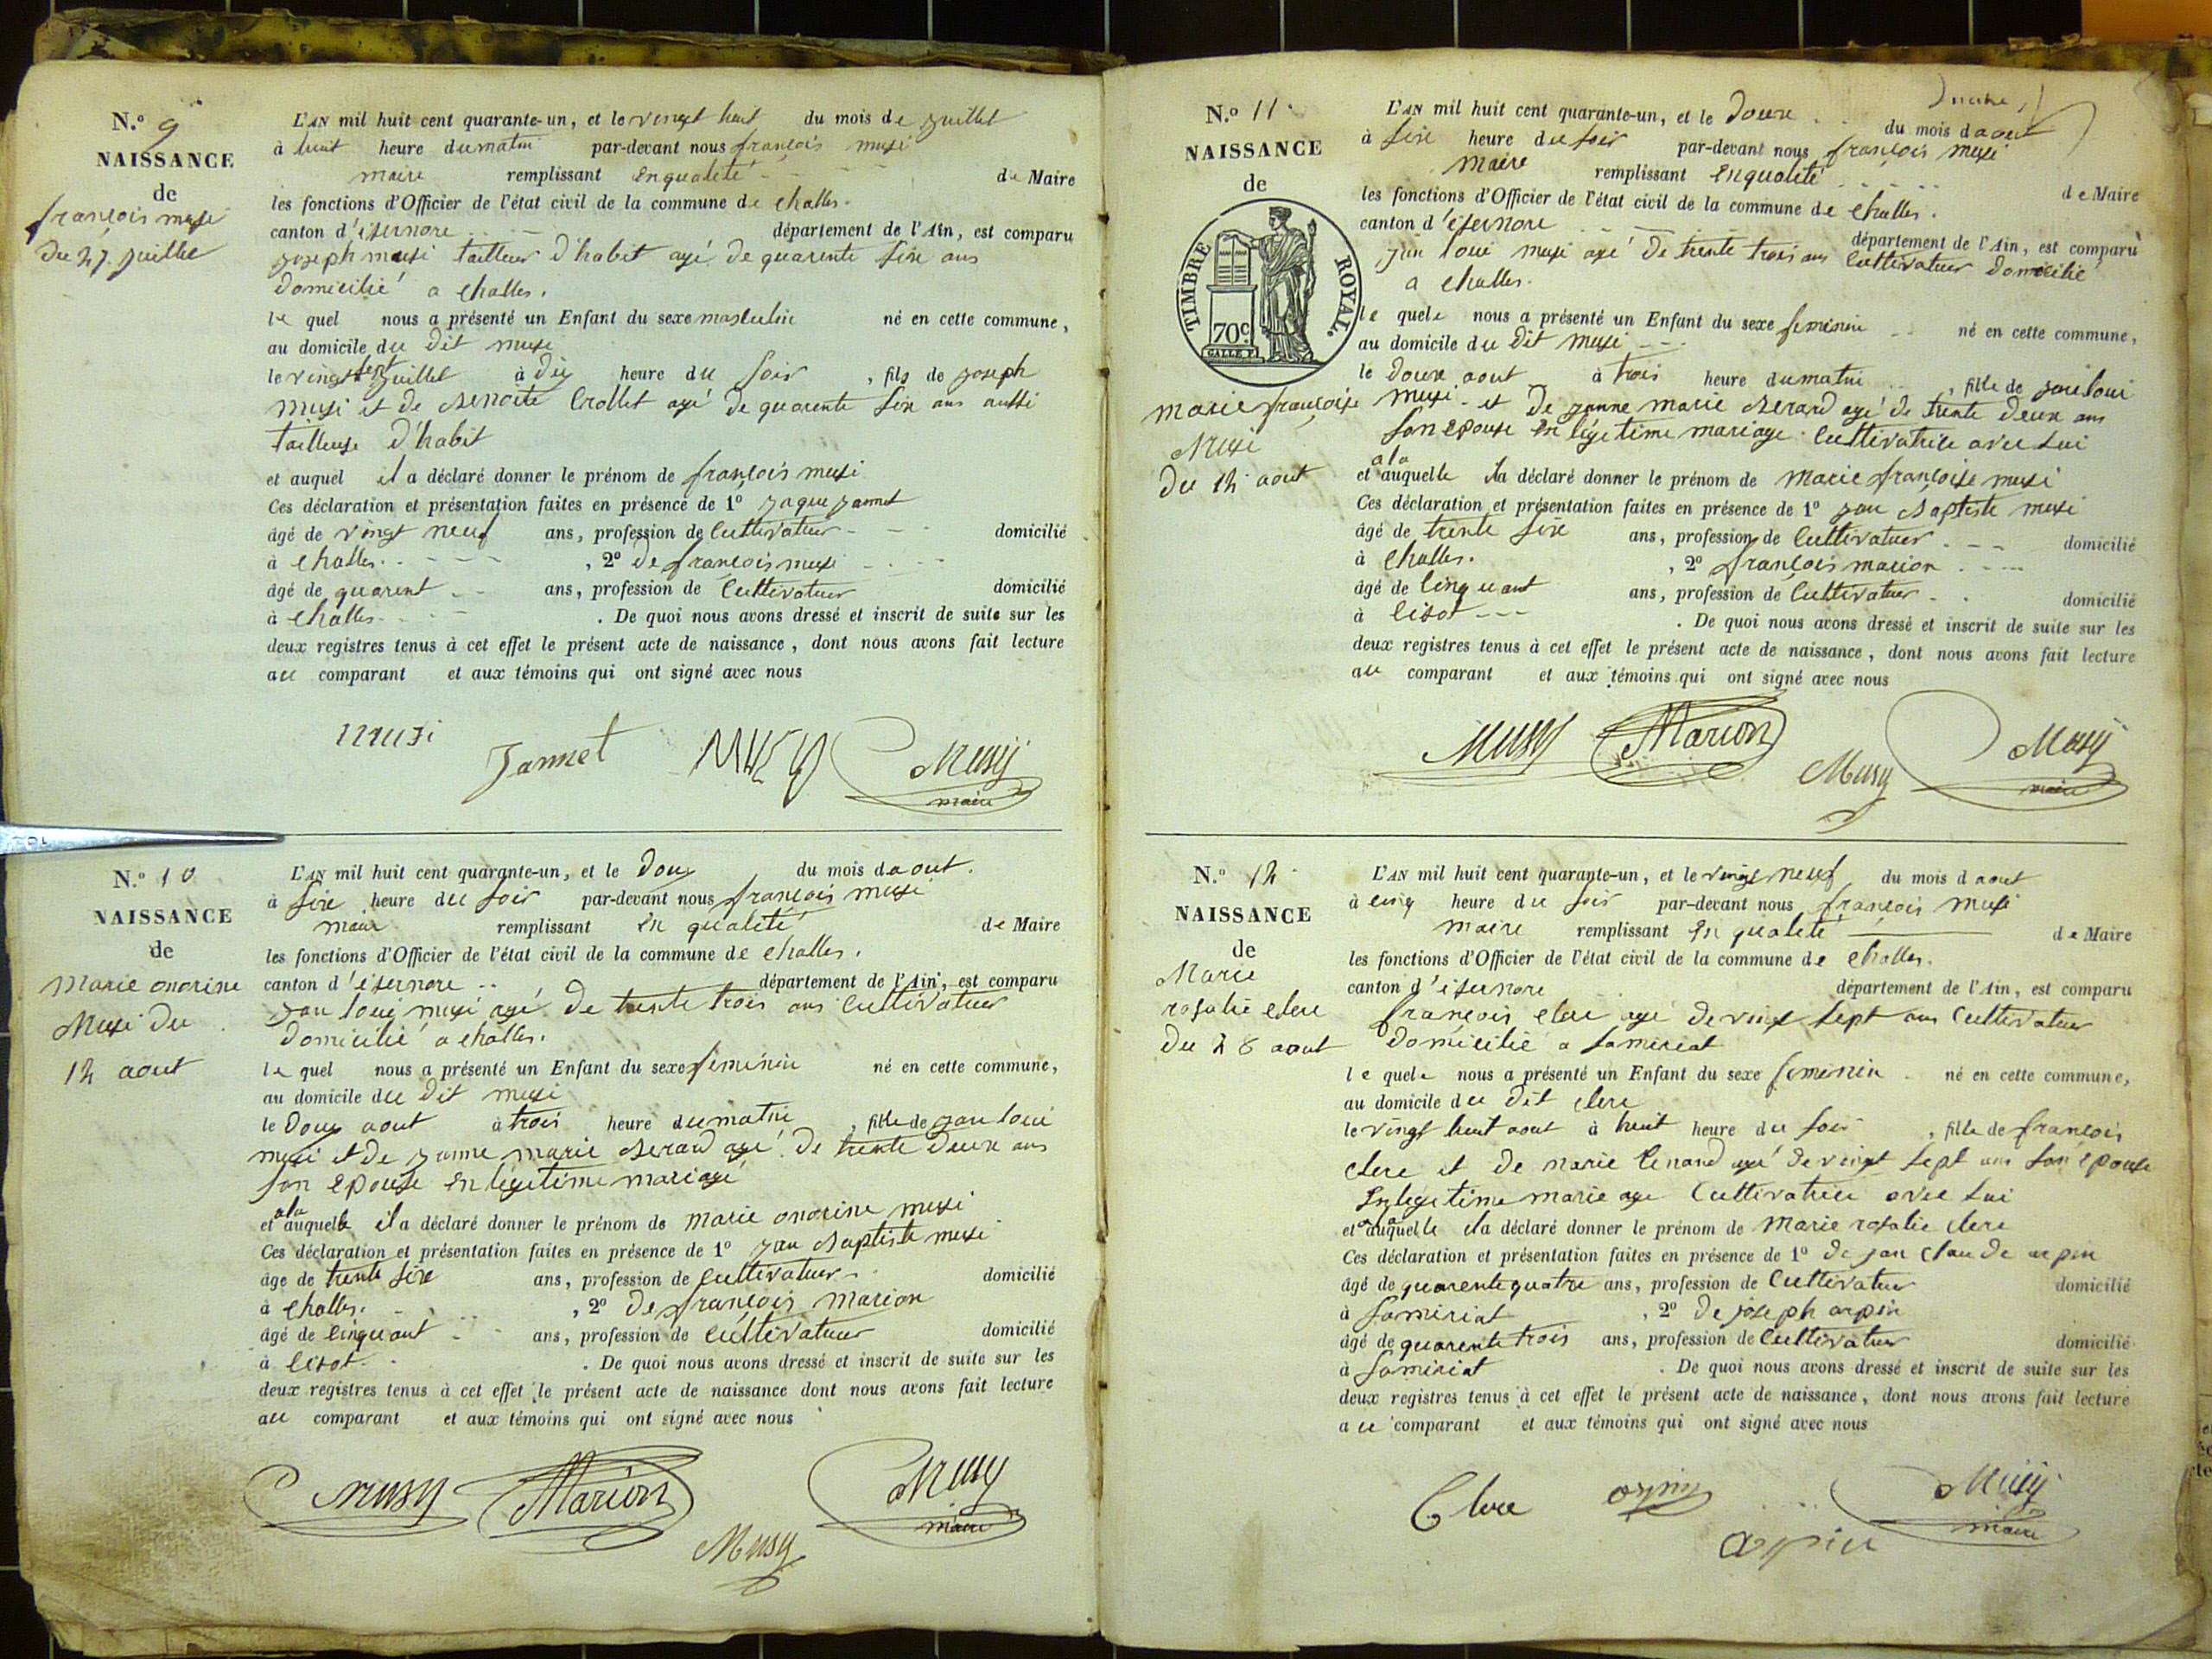 N.º 9
NAISSANCE
de
françois musi
Du 27 juillet
L'AN mil huit cent quarante-un, et le vingt huit du mois de juillet
à huit heure du matin par-devant nous françois musi
maire remplissant en qualité de Maire
les fonctions d'Officier de l'état civil de la commune de challes.
canton d'isernore département de l'Ain, est comparu
joseph musi tailleur d'habit agé de quarente sixe ans
Domicilié a challes.
le quel nous a présenté un Enfant du sexe masculin né en cette commune,
au domicile du Dit musi
le vingt sept juillet à Dix heure du soir, fils de joseph
musi et de Benoite Crollet agé de quarente sixe ans aussi
tailleuse d'habit
et auquel il a déclaré donner le prénom de françois musi
Ces déclaration et présentation faites en présence de 1º jaque janet
âgé de vingt neuf ans, profession de Cultivateur domicilié
à challes. , 2º de françois musi
âgé de quarent ans, profession de Cultivateur domicilié
à challes. . De quoi nous avons dressé et inscrit de suite sur les
deux registres tenus à cet effet le présent acte de naissance, dont nous avons fait lecture
au comparant et aux témoins qui ont signé avec nous
musi Jannet Musy Musy
maire
N.º 10
NAISSANCE
de
Marie onorine
Musi Du
12 aout
L'AN mil huit cent quarante-un, et le Douz du mois daout.
à sixe heure du soir par-devant nous françois musi
maire remplissant en qualité de Maire
les fonctions d'Officier de l'état civil de la commune de challes.
canton d'isernore département de l'Ain, est comparu
jan loui musi agé de trente trois ans Cultivateur
Domicilié a challes.
le quel nous a présenté un Enfant du sexe feminin né en cette commune,
au domicile du Dit musi
le Douz aout à trois heure du matin, fille de jan loui
musi et De janne marie Berard agé De trente Deux ans
son epouse en légitime mariage
et a la auquelle il a déclaré donner le prénom de marie onorine musi
Ces déclaration et présentation faites en présence de 1º jan Baptiste musi
âgé de trente sixe ans, profession de Cultivateur domicilié
à challes. , 2º De françois Marion
âgé de cinquant ans, profession de Cultivateur domicilié
à Cisot. . De quoi nous avons dressé et inscrit de suite sur les
deux registres tenus à cet effet le présent acte de naissance dont nous avons fait lecture
au comparant et aux témoins qui ont signé avec nous
Musy Marion Musy Musy
maire
N.º 11
NAISSANCE
de
TIMBRE ROYAL.
70 c.
marie françoise
Musi
Du 12 aout
L'AN mil huit cent quarante-un, et le Douxe du mois daout
à sixe heure du soir par-devant nous françois musi
maire remplissant en qualité de Maire
les fonctions d'Officier de l'état civil de la commune de challes.
canton d'isernore département de l'Ain, est comparu
jan loui musi agé De trente trois ans Cultivateur Domicilié
a challes.
le quele nous a présenté un Enfant du sexe feminin né en cette commune,
au domicile du Dit musi
le Douxe aout à trois heure du matin, fille de jan loui
musi et De janne marie Berard agé De trente Deux ans
son epouse en légitime mariage Cultivatrice avec lui
et a la auquelle il a déclaré donner le prénom de Marie françoise musi
Ces déclaration et présentation faites en présence de 1º jan Baptiste musi
âgé de trente sixe ans, profession de Cultivateur domicilié
à challes. , 2º françois marion
âgé de Cinquant ans, profession de Cultivateur domicilié
à Cisot . De quoi nous avons dressé et inscrit de suite sur les
deux registres tenus à cet effet le présent acte de naissance, dont nous avons fait lecture
au comparant et aux témoins qui ont signé avec nous
Musy Marion Musy Musy
maire
N.º 12
NAISSANCE
de
Marie
rosalie clere
Du 28 aout
L'AN mil huit cent quarante-un, et le vingt neuf du mois daout
à cinq heure du soir par-devant nous françois musi
maire remplissant en qualité de Maire
les fonctions d'Officier de l'état civil de la commune de challes.
canton d'isernore département de l'Ain, est comparu
françois clere agé De vingt sept ans Cultivateur
Domicilié a samiriat
le quele nous a présenté un Enfant du sexe feminin né en cette commune,
au domicile du Dit clere
le vingt huit aout à huit heure du soir, fille de françois
clere et De marie Cenand agé De vingt sept ans son epouse
en legitime marie age Cultivatrice avec lui
et a la auquelle il a déclaré donner le prénom de Marie rosalie clere
Ces déclaration et présentation faites en présence de 1º De jan claude arpin
âgé de quarente quatre ans, profession de Cultivateur domicilié
à samiriat , 2º De joseph arpin
âgé de quarente trois ans, profession de Cultivateur domicilié
à samiriat . De quoi nous avons dressé et inscrit de suite sur les
deux registres tenus à cet effet le présent acte de naissance, dont nous avons fait lecture
au comparant et aux témoins qui ont signé avec nous
Clere arpin arpin Musy
maire